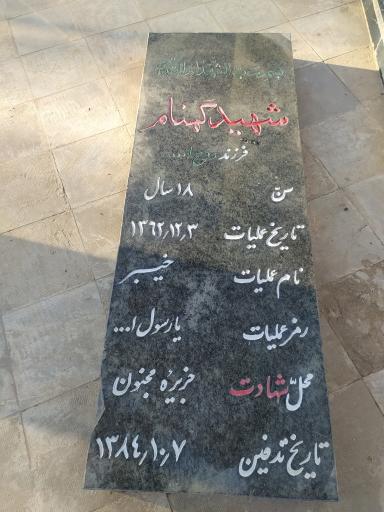 شهید گمنام
فرزند روح الله
سنّ ۱۸ سال
تاریخ عملیات ۱۳۶۲/۱۲/۳
نام عملیات خیبر
رمز عملیات یا رسول ا...
محلّ شهادت جزیره مجنون
تاریخ تدفین ۱۳۸۴/۱۰/۷